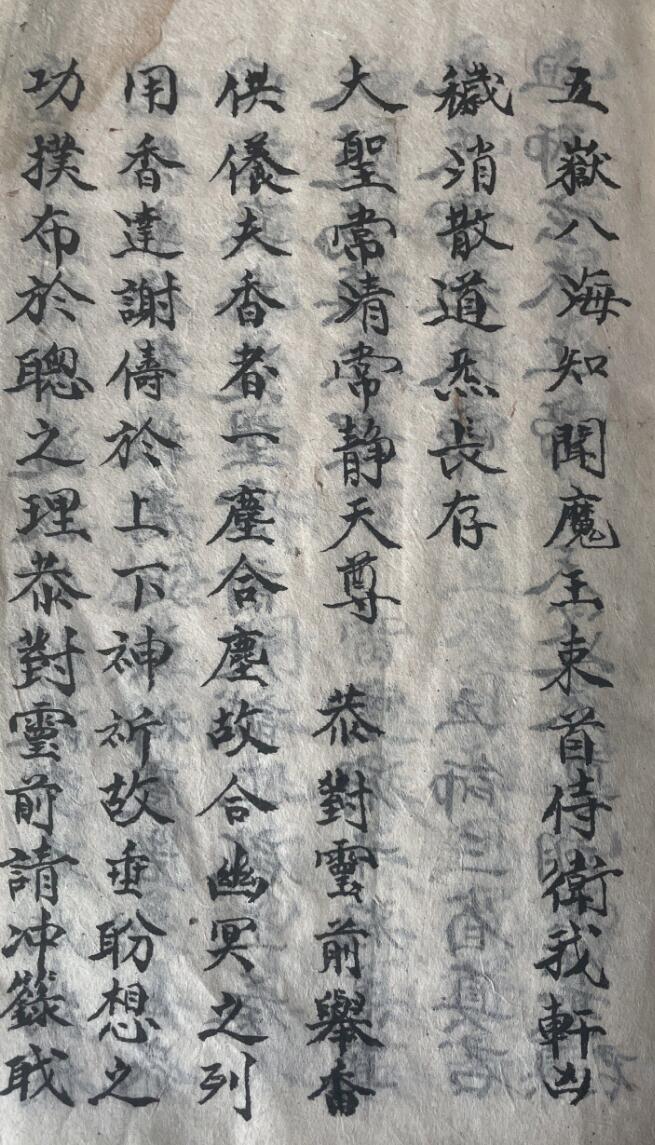 五嶽八海知聞魔王束首侍衛我軒凶
穢消散道炁長存
大聖常清常静天尊 恭對靈前舉香
供儀夫香者一塵合塵故合幽冥之列
用香達謝儔於上下神祈故垂盼想之
功撲布於聰之理恭對靈前請冲籙職